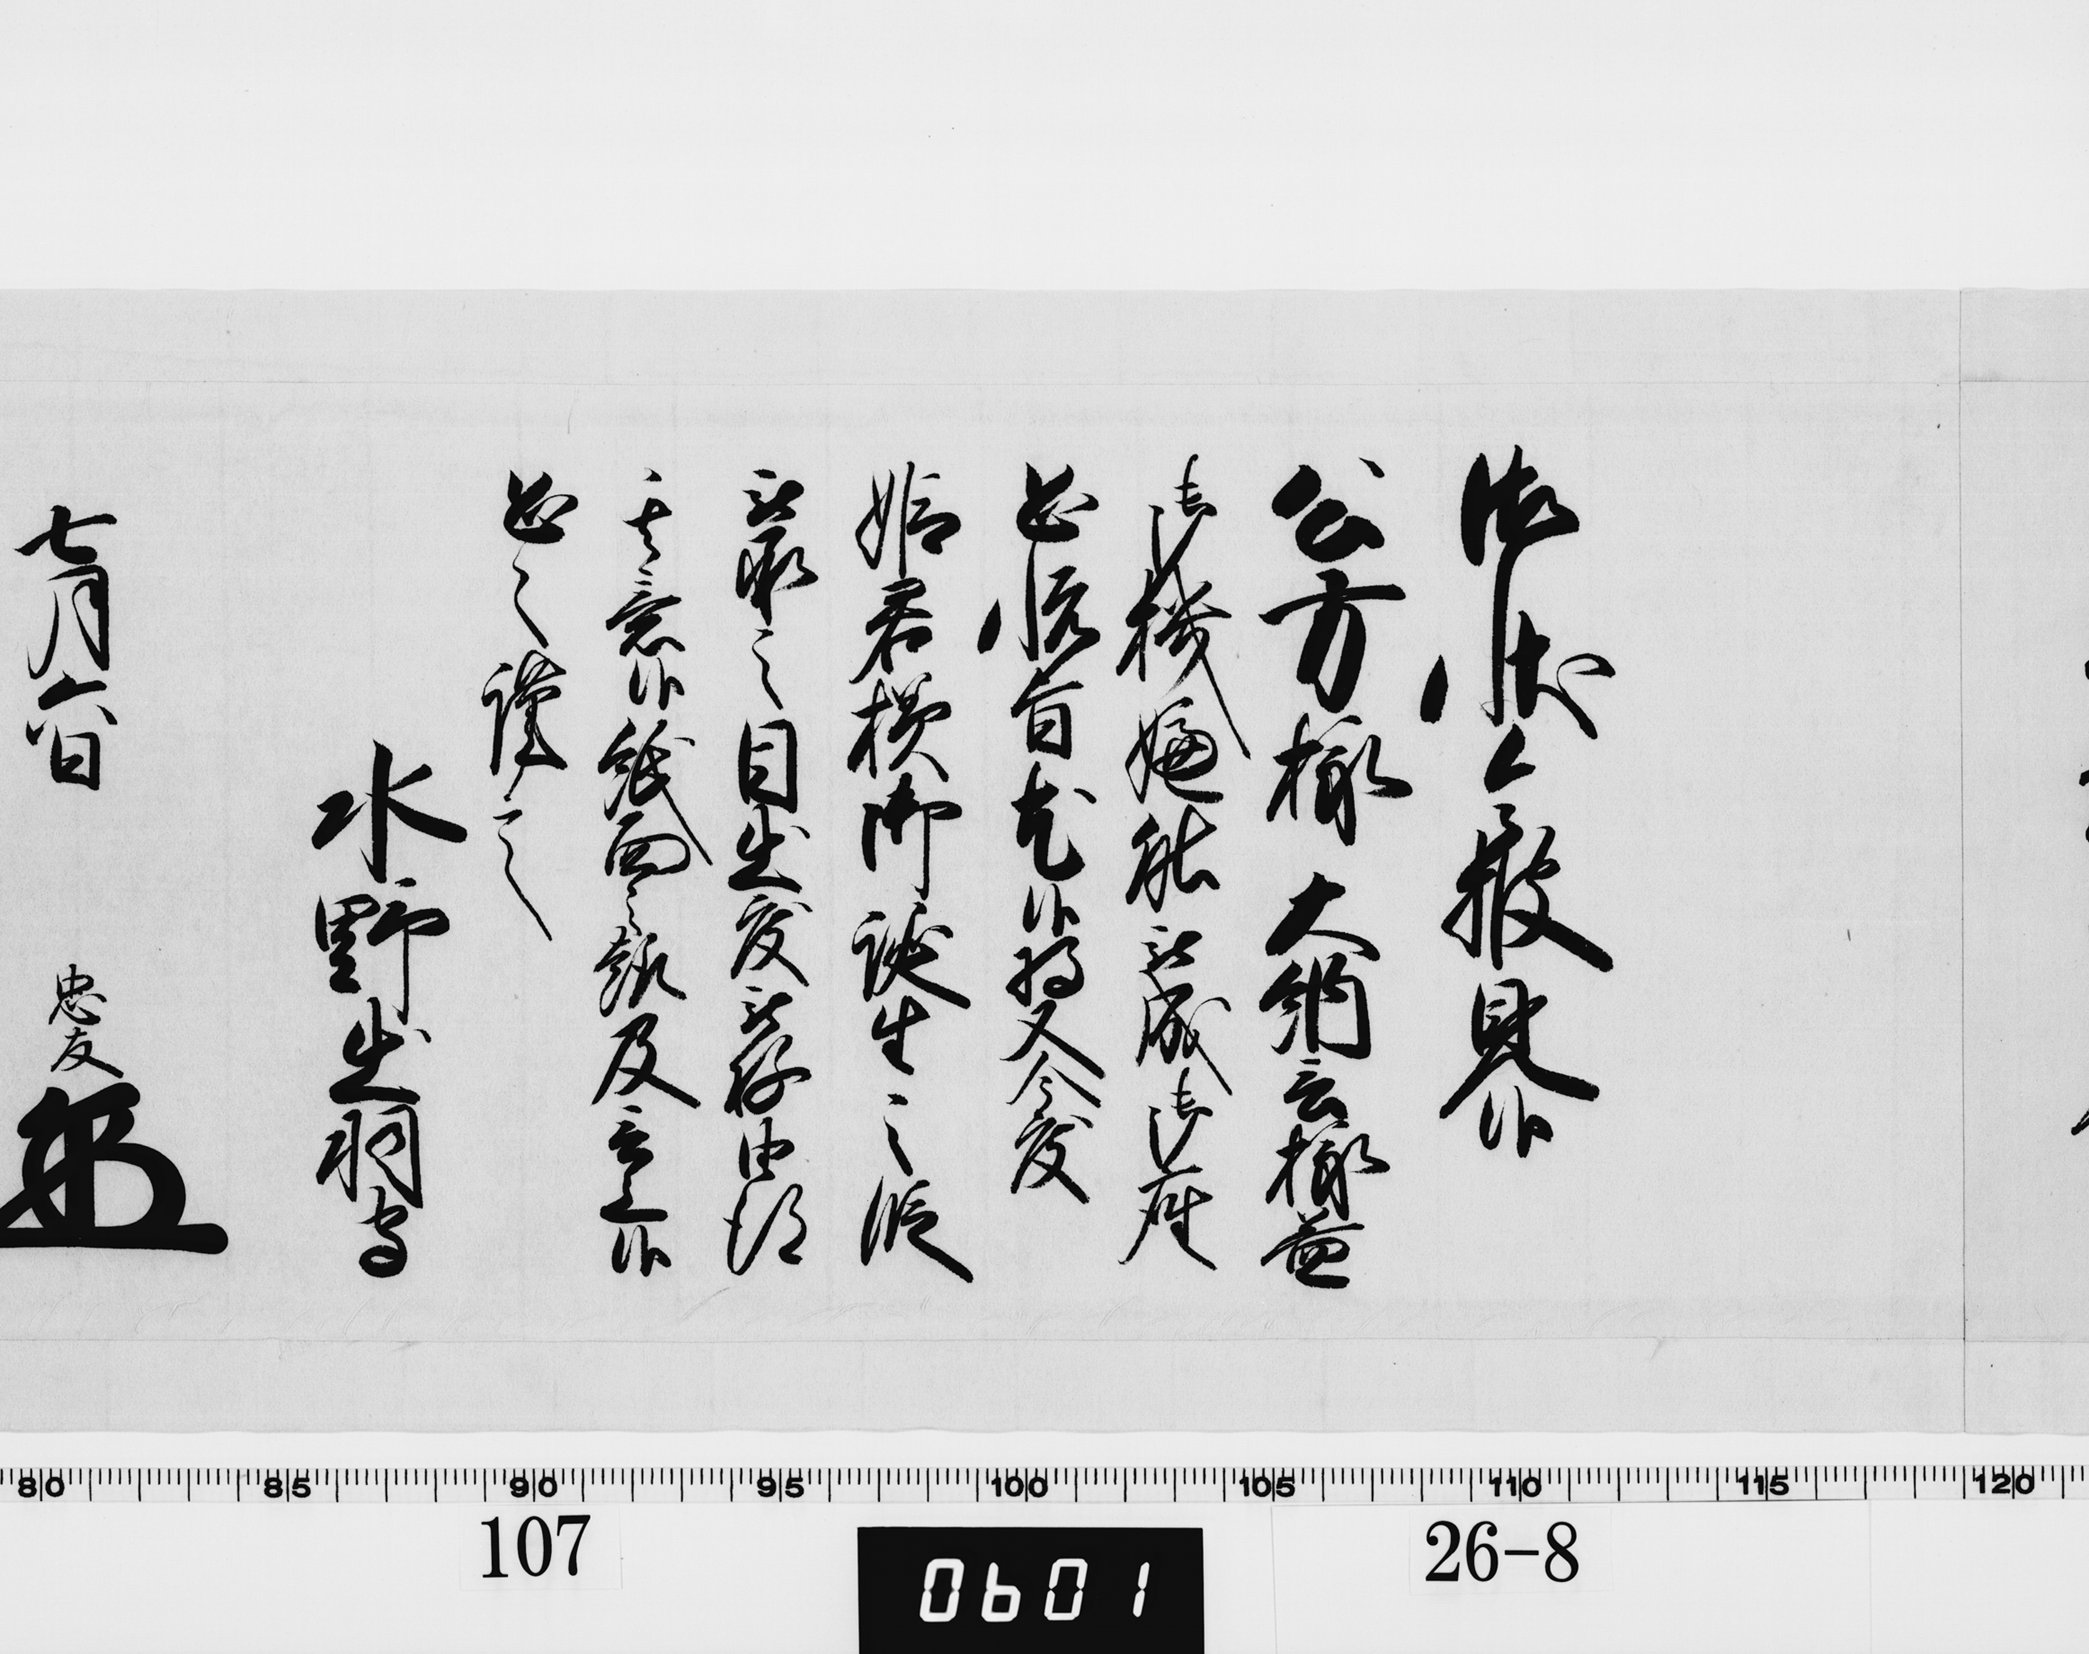 御状令披見候
公方様大納言様益
御機嫌能被成御座
恐悦旨尤候将又今度
姫君様御誕生之段
被承之目出度被存由得
其意候紙面之趣及言上候
恐々謹言
水野出羽守
七月六日
忠友
80 85 90 95 100 105 110 115 120
107
0601
26-8